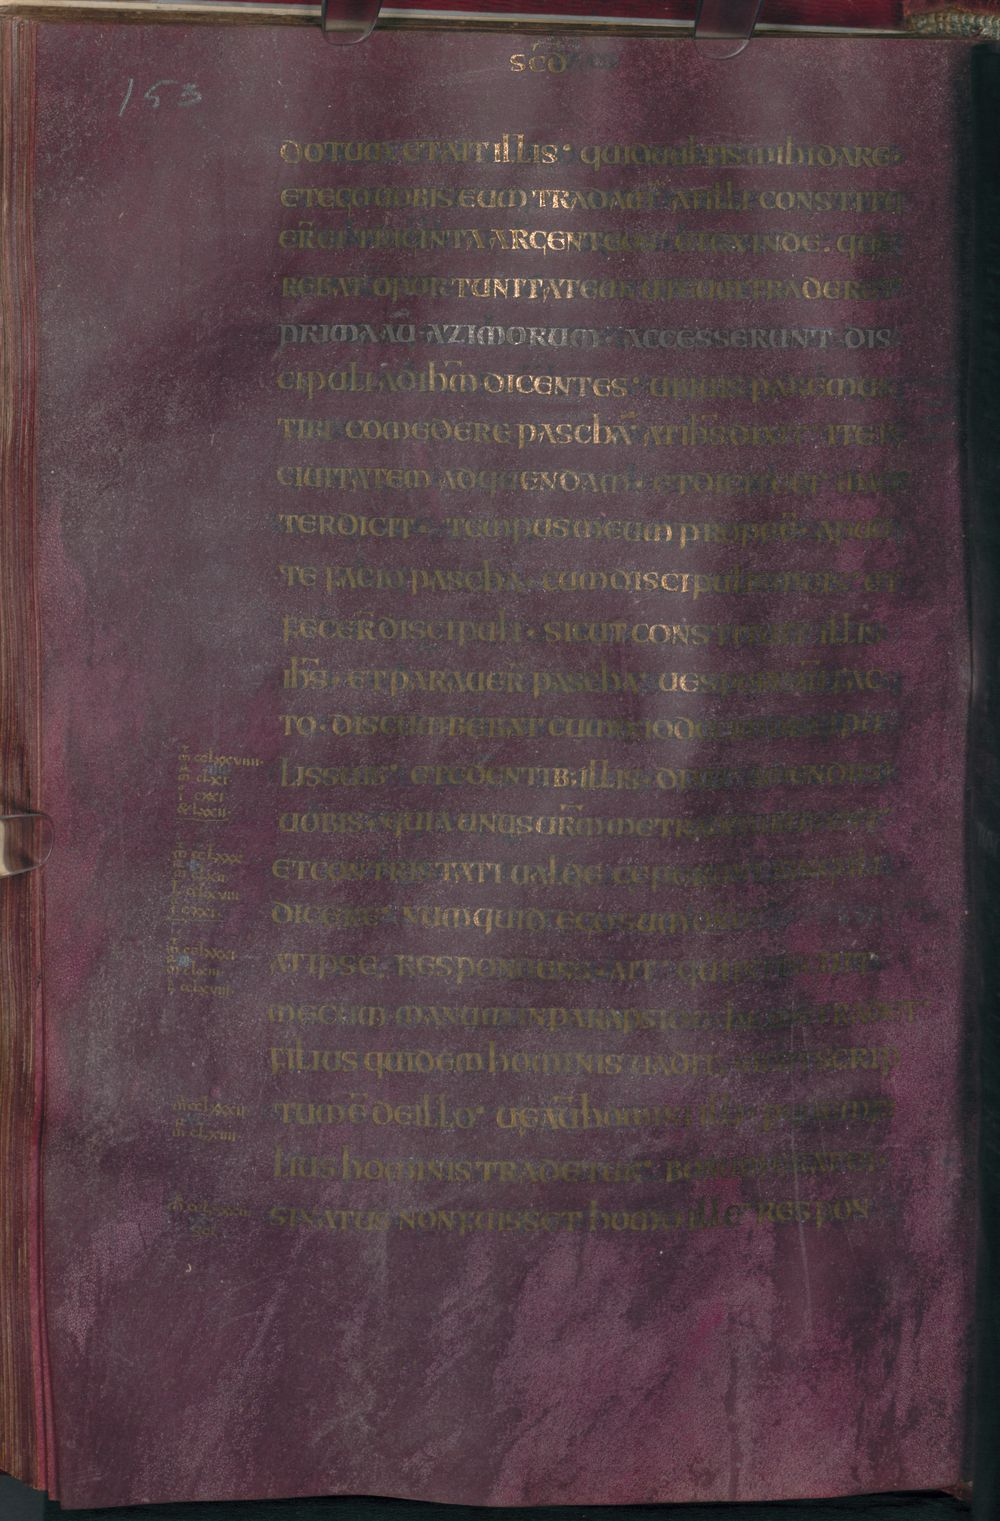 153
SCD̄
DOTUM ET AIT ILLIS· QUID UULTIS MIHI DARE·
ET EGO UOBIS EUM TRADAM· AT ILLI CONSTITU
ER̄ EI TRIGINTA ARGENTEOS· ET EXINDE· QUE
REBAT OPORTUNITATEM UT EUM TRADERET
PRIMA AŪ AZIMORUM· ACCESSERUNT DIS
CIPULI AD IHM̄ DICENTES· UBI UIS PAREMUS
TIBI COMEDERE PASCHA· AT IHS̄ DIXIT· ITE IN
CIUITATEM AD QUENDAM· ET DICITE EI MAGIS
TER DICIT· TEMPUS MEUM PROPE Ē· APUD
TE FACIO PASCHA· CUM DISCIPULIS MEIS· ET
FECER̄ DISCIPULI· SICUT CONSTITUIT ILLIS
IHS̄· ET PARAUER̄ PASCHA· UESPERE AŪ FAC
TO· DISCUMBEBAT CUM XII DISCIPU
LIS SUIS· ET EDENTIB· ILLIS· DIXIT· AMEN DICO
UOBIS· QUIA UNUS UR̄M ME TRADITURUS EST
ET CONTRISTATI UALDE CEPERUNT SINGULI
DICERE· NUMQUID EGO SUM
AT IPSE RESPONDENS· AIT· QUI INTINGIT
MECUM MANUM IN PARAPSIDE· HIC ME TRADET
FILIUS QUIDEM HOMINIS UADIT· SICUT SCRIP
TUM Ē DE ILLO· UAE AŪ HOMINI ILLI· PER QUEM FI
LIUS HOMINIS TRADETUR· BONUM ERAT EI
SI NATUS NON FUISSET HOMO ILLE· RESPON